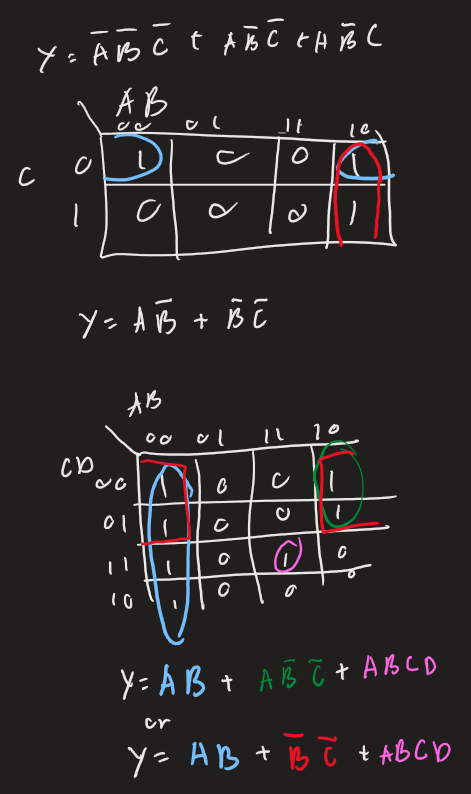 Y = A̅ B̅ C̅ + A B̅ C̅ + A B̅ C
AB
00 01 11 10
C 0 1 0 0 1
1 0 0 0 1
Y = A B̅ + B̅ C̅
AB
00 01 11 10
CD 00 1 0 0 1
01 1 0 0 1
11 1 0 1 0
10 1 0 0 0
Y = AB + A B̅ C̅ + ABCD
or
Y = AB + B̅ C̅ + ABCD